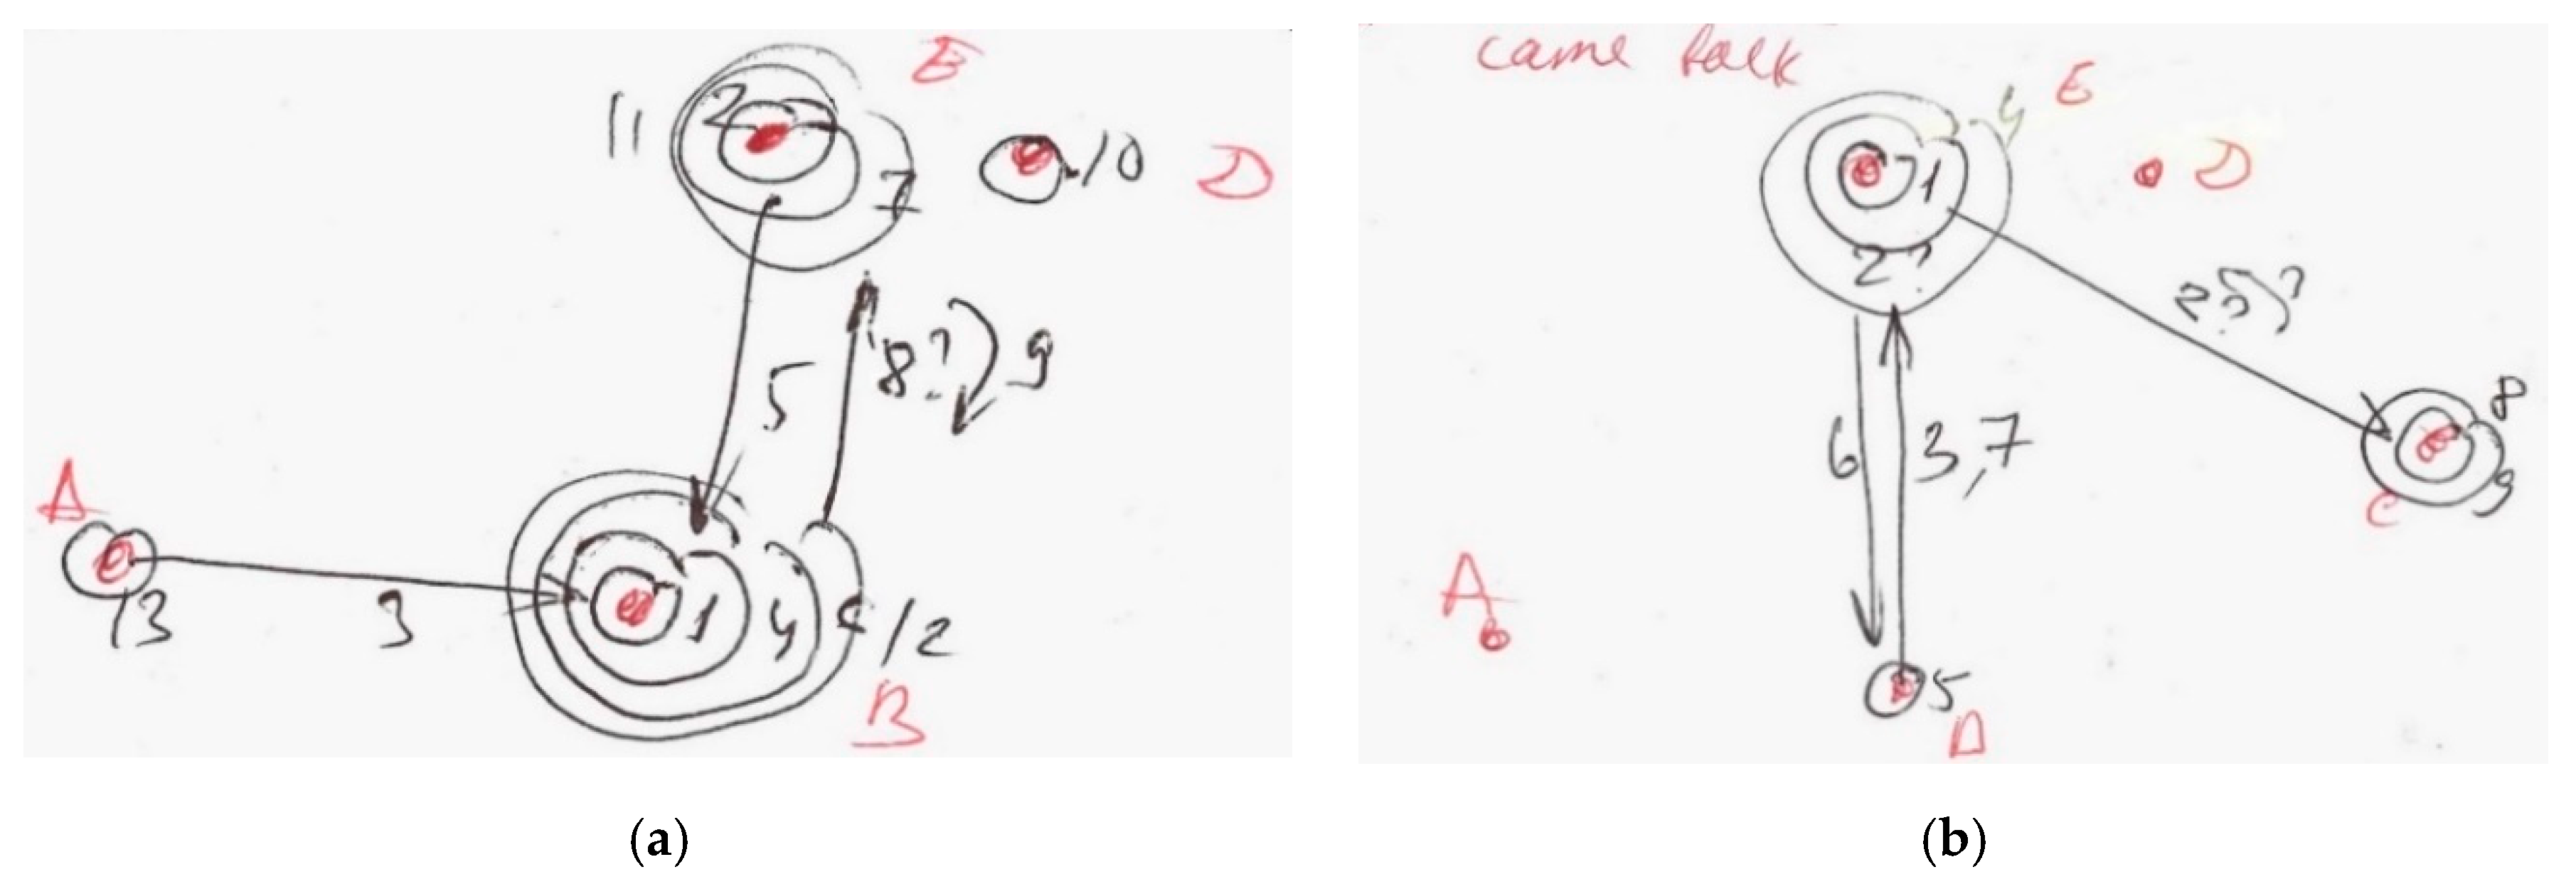 E
11 2 7
10 D
5 8? 9
A
13 3 1 4 12
B
(a)
came talk
4 E
D
1
2?
6 3,7
8
9
C
A
5
(b)